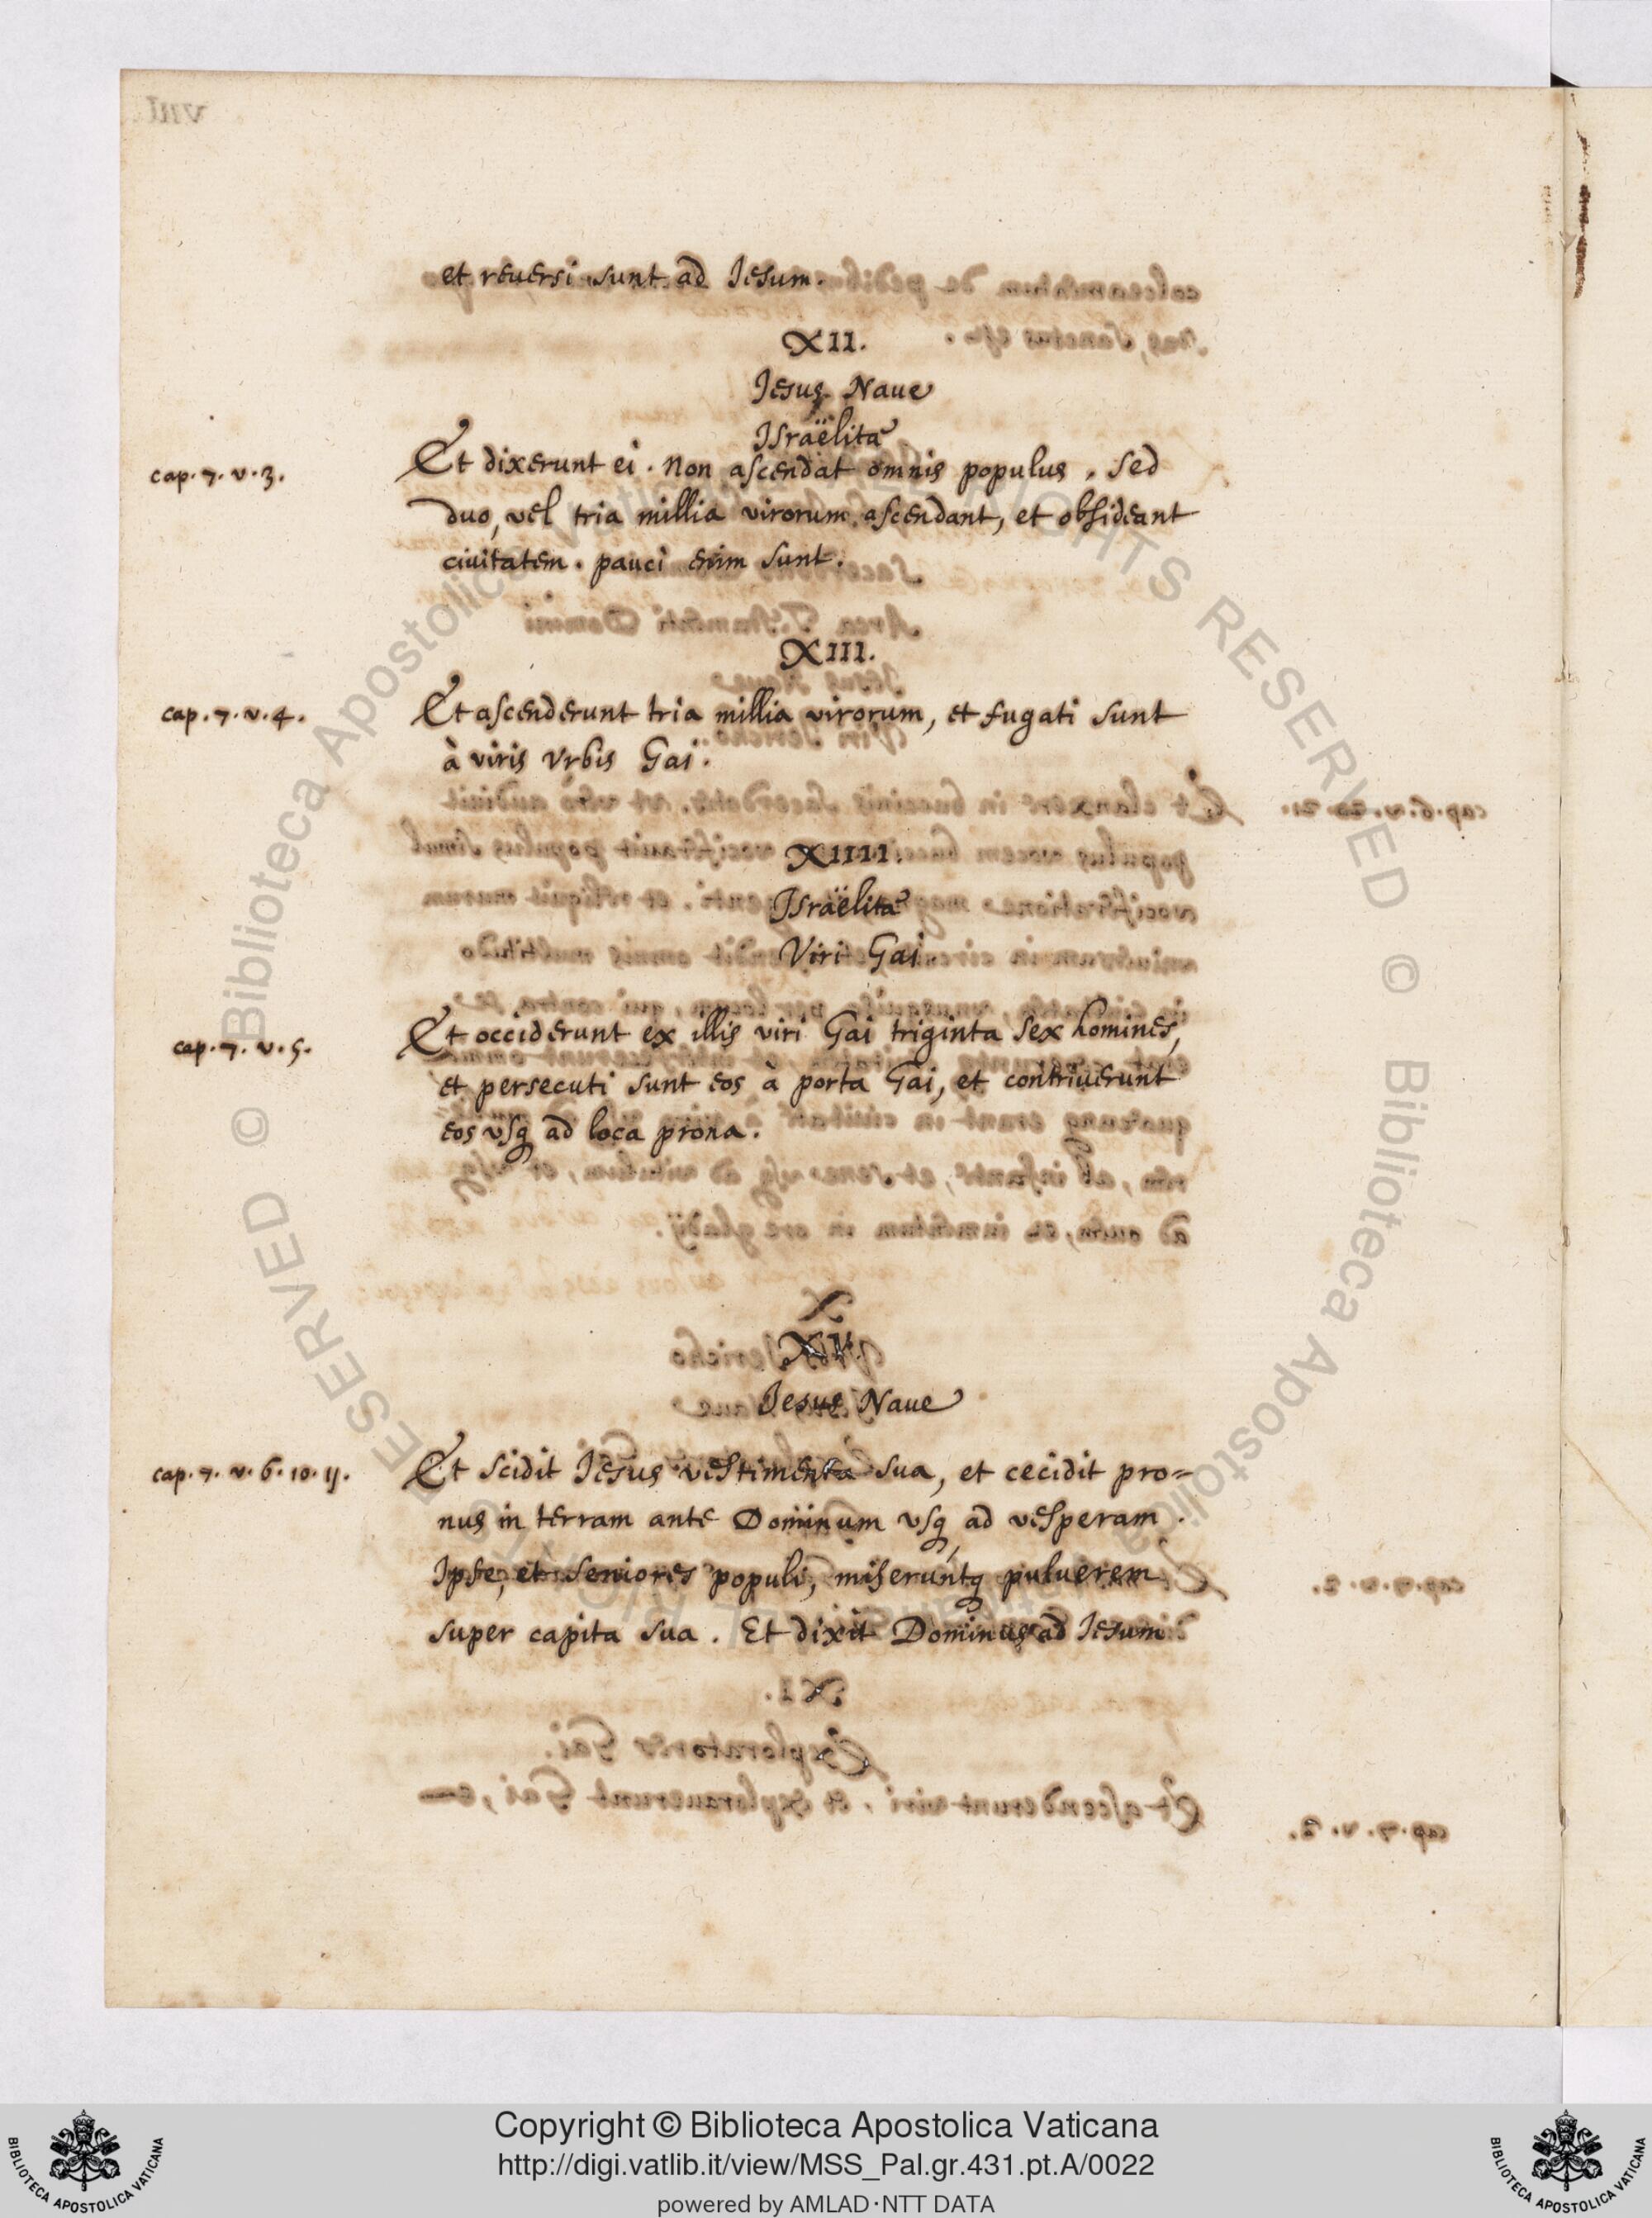 et reuersi sunt ad Iesum.
XII.
Iesus Naue
Israëlitæ
cap. 7. v. 3.
Et dixerunt ei. Non ascendat omnis populus, sed
duo, vel tria millia virorum ascendant, et obsideant
ciuitatem. pauci enim sunt.
XIII.
cap. 7. v. 4.
Et ascenderunt tria millia virorum, et fugati sunt
à viris vrbis Gai.
XIIII.
Israëlitæ
Viri Gai
cap. 7. v. 5.
Et occiderunt ex illis viri Gai triginta sex homines,
et persecuti sunt eos à porta Gai, et contriuerunt
eos vsq ad loca prona.
XV.
Iesus Naue
cap. 7. v. 6. 10. 11.
Et scidit Iesus vestimenta sua, et cecidit pro=
nus in terram ante Dominum vsq ad vesperam.
Ipse, et seniores populi, miseruntq puluerem
super capita sua. Et dixit Dominus ad Iesum
© Biblioteca Apostolica Vaticana ALL RIGHTS RESERVED © Biblioteca Apostolica Vaticana ALL RIGHTS RESERVED
Copyright © Biblioteca Apostolica Vaticana
http://digi.vatlib.it/view/MSS_Pal.gr.431.pt.A/0022
powered by AMLAD·NTT DATA
BIBLIOTECA APOSTOLICA VATICANA
BIBLIOTECA APOSTOLICA VATICANA